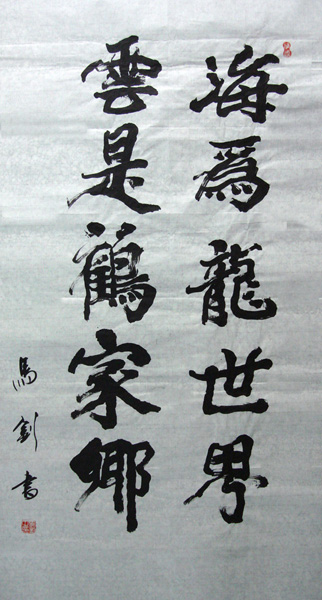 海為龍世界
雲是鶴家鄉
馬劍書